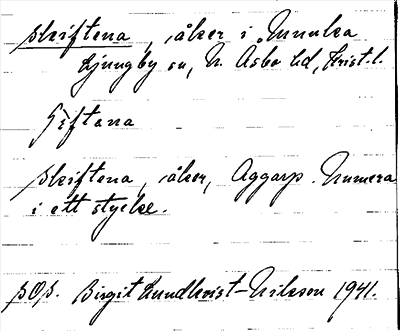 Skiftena, åker i Munka
Ljungby sn, N. Åsbo hd, Krist. l.
Skiftena, åker, Aggarp. Numera
i ett stycke.
Birgit Lundkvist-Nilsson 1941.